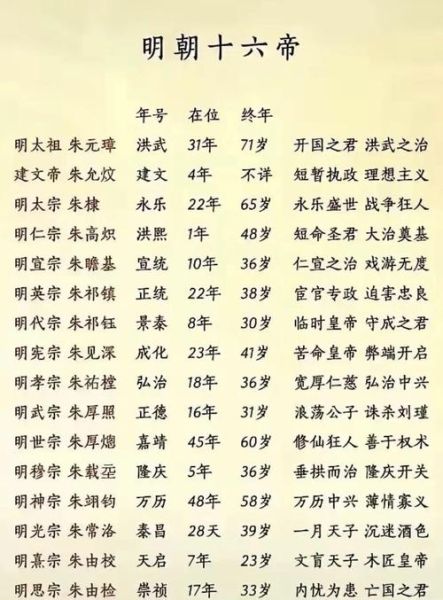 明朝十六帝
年号 在位 终年
明太祖 朱元璋 洪武 31年 71岁 开国之君 洪武之治
建文帝 朱允炆 建文 4年 不详 短暂执政 理想主义
明太宗 朱棣 永乐 22年 65岁 永乐盛世 战争狂人
明仁宗 朱高炽 洪熙 1年 48岁 短命圣君 大治奠基
明宣宗 朱瞻基 宣统 10年 36岁 仁宣之治 戏游无度
明英宗 朱祁镇 正统 22年 38岁 宦官专政 迫害忠良
明代宗 朱祁钰 景泰 8年 30岁 临时皇帝 守成之君
明宪宗 朱见深 成化 23年 41岁 苦命皇帝 弊端开启
明孝宗 朱祐樘 弘治 18年 36岁 宽厚仁慈 弘治中兴
明武宗 朱厚照 正德 16年 31岁 浪荡公子 诛杀刘瑾
明世宗 朱厚熜 嘉靖 45年 60岁 修仙狂人 善于权术
明穆宗 朱载坖 隆庆 5年 36岁 垂拱而治 隆庆开关
明神宗 朱翊钧 万历 48年 58岁 万历中兴 薄情寡义
明光宗 朱常洛 泰昌 28天 39岁 一月天子 沉迷酒色
明熹宗 朱由校 天启 7年 23岁 文盲天子 木匠皇帝
明思宗 朱由检 崇祯 17年 33岁 内忧为患 亡国之君